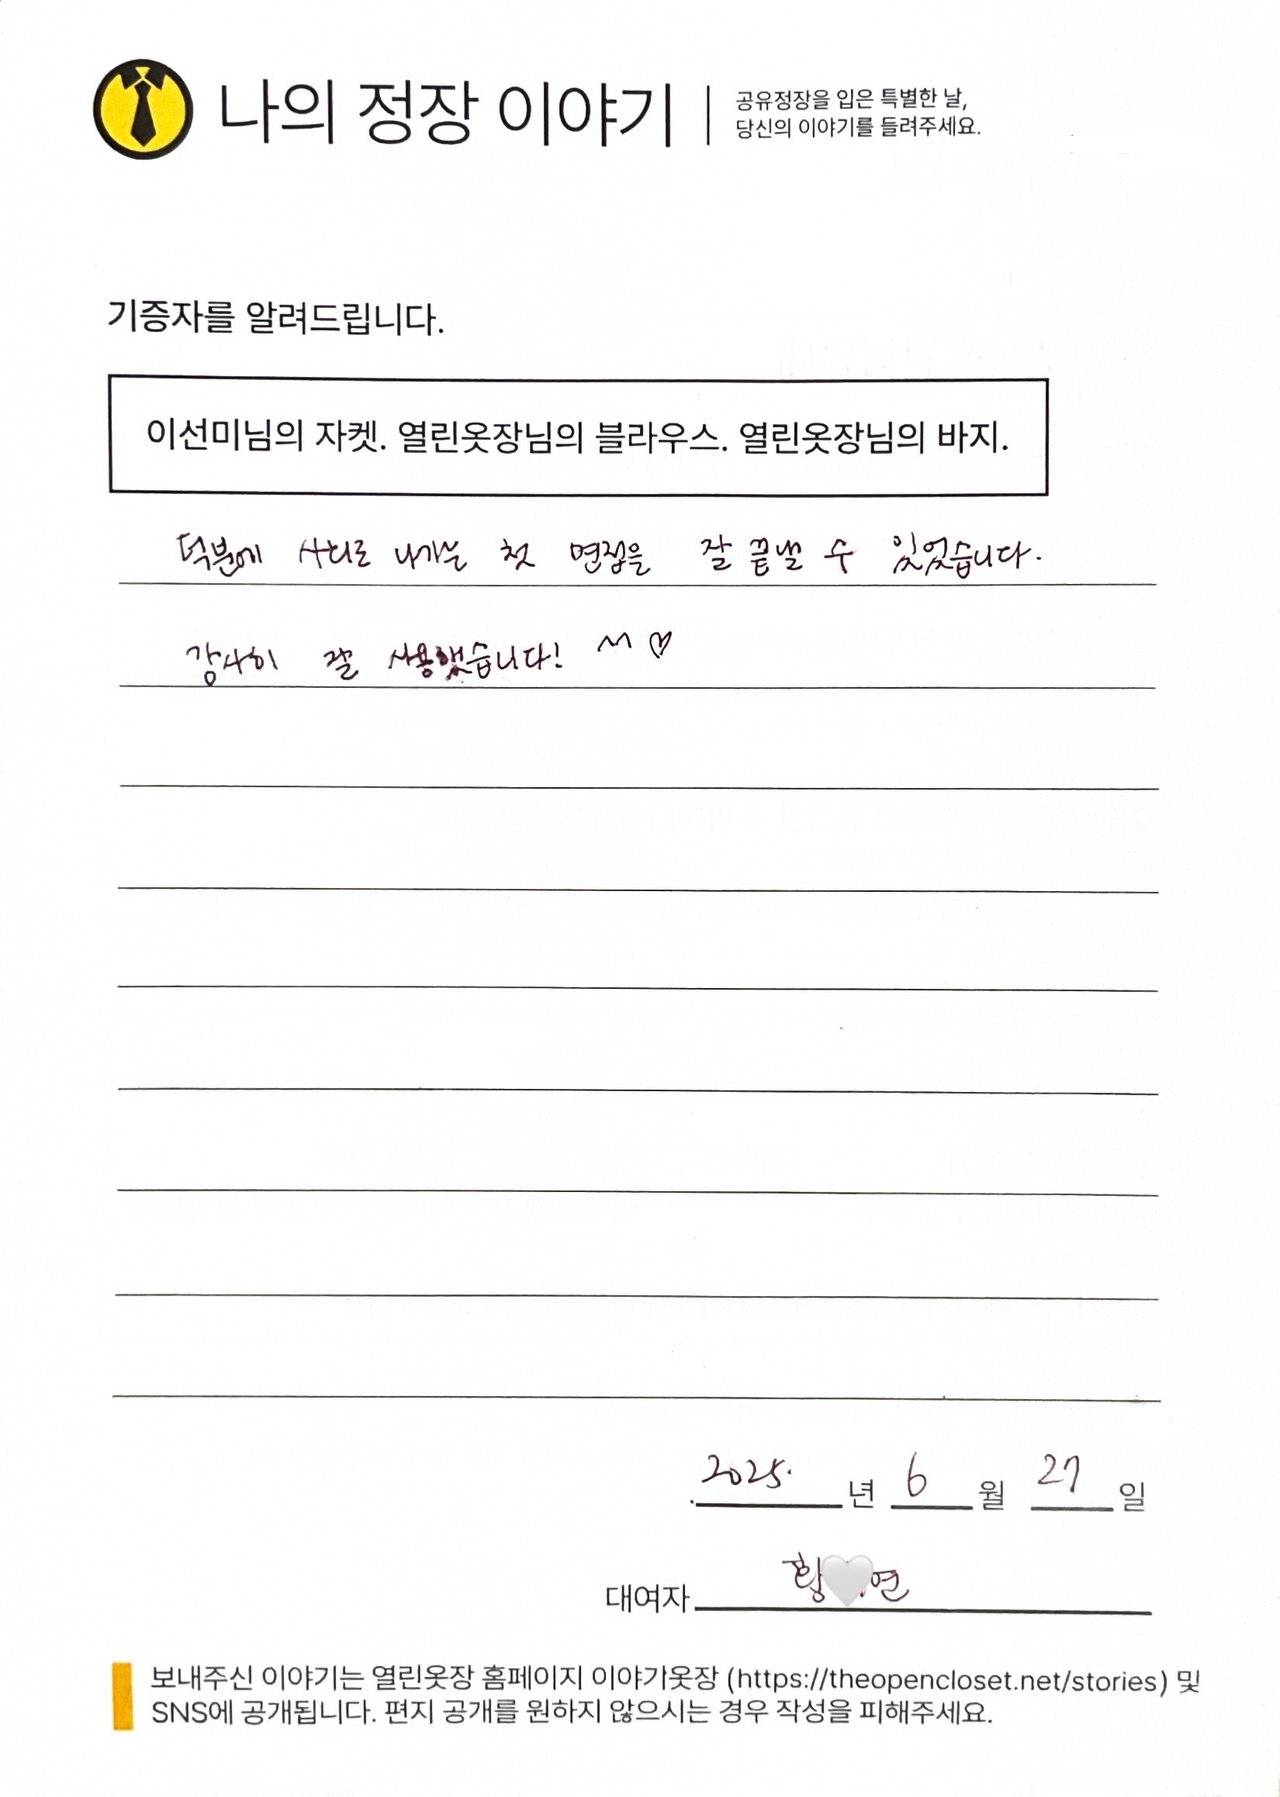 나의 정장 이야기
공유정장을 입은 특별한 날,
당신의 이야기를 들려주세요.
기증자를 알려드립니다.
이선미님의 자켓. 열린옷장님의 블라우스. 열린옷장님의 바지.
덕분에 사회로 나가는 첫 면접을 잘 끝낼 수 있었습니다.
감사히 잘 사용했습니다! ^^ ♡
2025. 년 6 월 27 일
대여자 황 연
보내주신 이야기는 열린옷장 홈페이지 이야기옷장 (https://theopencloset.net/stories) 및
SNS에 공개됩니다. 편지 공개를 원하지 않으시는 경우 작성을 피해주세요.